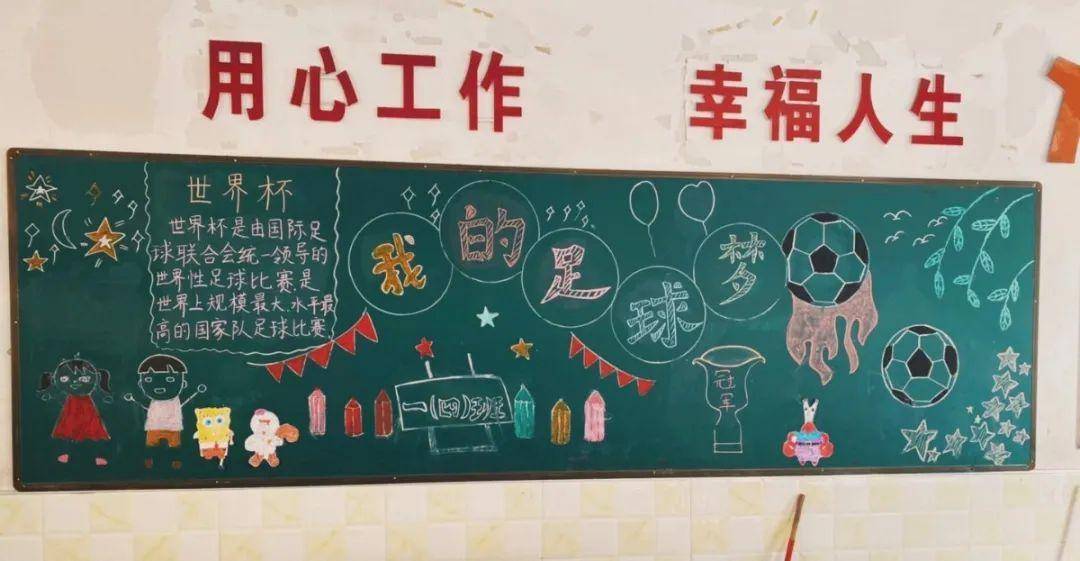 用心工作 幸福人生
世界杯
世界杯是由国际足
球联合会统一领导的
世界性足球比赛是
世界上规模最大.水平最
高的国家队足球比赛
我的足球梦
一(四)班
冠军